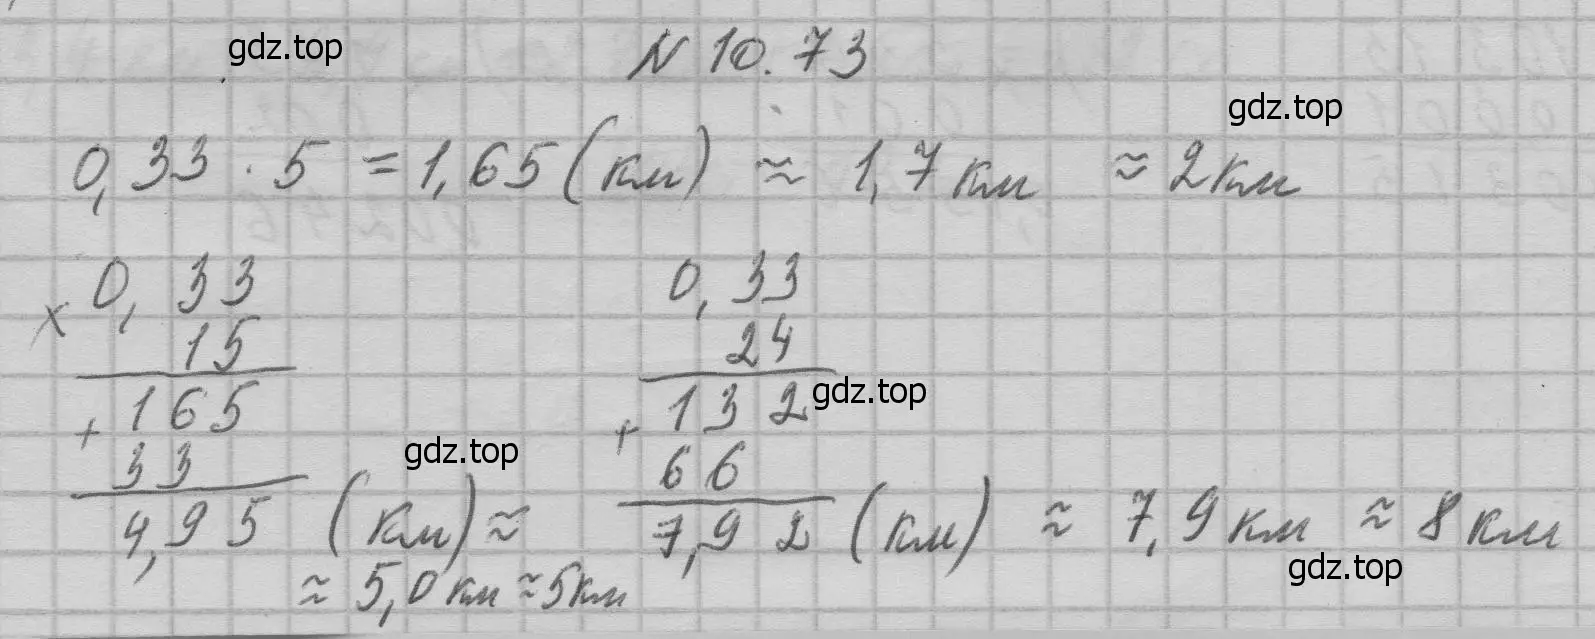 gdz.top
N 10.73
gdz.top
0,33 · 5 = 1,65 (км) ≈ 1,7 км ≈ 2 км
× 0,33
15
+ 165
33
4,95 (км) ≈
≈ 5,0 км ≈ 5 км
gdz.top
0,33
24
+ 132
66
7,92 (км) ≈ 7,9 км ≈ 8 км
gdz.top
gdz.top